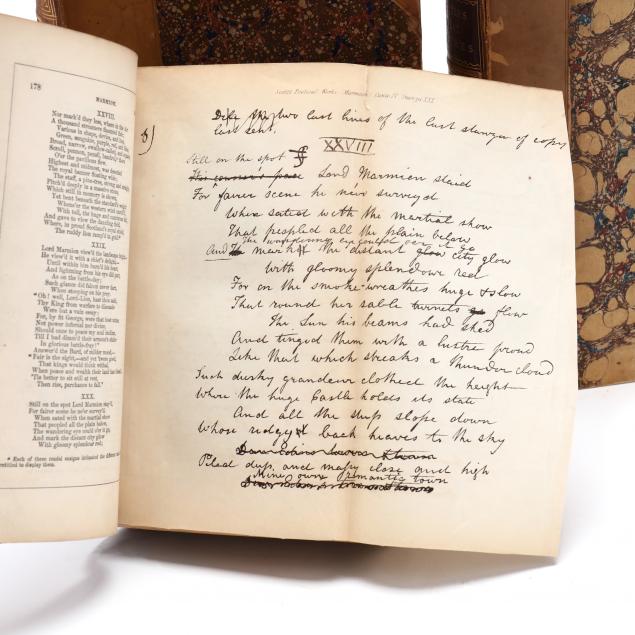 178
MARMION.
XXVIII.
Nor mark'd they less, where in the air
A thousand streamers flaunted fair;
Various in shape, device, and hue,
Green, sanguine, purple, red, and blue,
Broad, narrow, swallow-tail'd, and square,
Scroll, pennon, pensil, bandrol,* there
O'er the pavilions flew.
Highest and midmost, was descried
The royal banner floating wide;
The staff, a pine-tree, strong and straight,
Pitch'd deeply in a massive stone,
Which still in memory is shown,
Yet bent beneath the standard's weight
Whene'er the western wind unroll'd,
With toil, the huge and cumbrous fold,
And gave to view the dazzling field,
Where, in proud Scotland's royal shield,
The ruddy lion ramp'd in gold.
XXIX.
Lord Marmion view'd the landscape bright,
He view'd it with a chief's delight,
Until within him burn'd his heart,
And lightning from his eye did part,
As on the battle-day;
Such glance did falcon never dart,
When stooping on his prey.
"Oh! well, Lord-Lion, hast thou said,
Thy King from warfare to dissuade
Were but a vain essay:
For, by St. George, were that host mine,
Not power infernal nor divine,
Should once to peace my soul incline,
Till I had dimm'd their armor's shine
In glorious battle-fray!"
Answer'd the Bard, of milder mood,—
"Fair is the sight,—and yet 'twere good,
That kings would think withal,
When peace and wealth their land has bless'd,
'Tis better to sit still at rest,
Then rise, perchance to fall."
XXX.
Still on the spot Lord Marmion stay'd,
For fairer scene he ne'er survey'd
When sated with the martial show
That peopled all the plain below,
The wandering eye could o'er it go,
And mark the distant city glow
With gloomy splendour red;
* Each of these feudal ensigns intimated the different
entitled to display them.
Scott's Poetical Works. Marmion: Canto IV Stanza XXX
Dele the two last lines of the last stanza of copy
last sent.
8)
XXVIII
Still on the spot
Lord Marmion staid
For fairer scene he ne'er survey'd
When sated with the martial show
That peopled all the plain below
The wandering eye could oer it go
And mark the distant glow city glow
With gloomy splendour red
For on the smoke-wreathes huge & slow
That round her sable turrets flow
The Sun his beams had shed
And tinged them with a lustre proud
Like that which streaks a thunder cloud
Such dusky grandeur clothed the height
Where the huge Castle holds its state
And all the steep slope down
Whose ridgy back heaves to the sky
Piled deep and massy close and high
Mine own romantic town